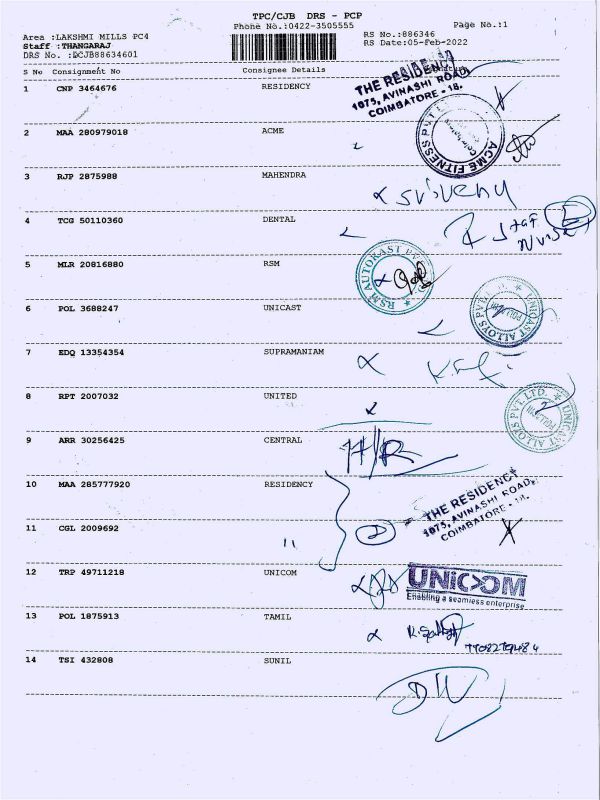 TPC/CJB DRS - PCP
Phone No.:0422-3505555
Page No.:1
Area :LAKSHMI MILLS PC4
Staff :THANGARAJ
DRS No. :DCJB88634601
RS No.:886346
RS Date:05-Feb-2022
S No Consignment No Consignee Details
1 CNP 3464676 RESIDENCY
THE RESIDENCY
1075, AVINASHI ROAD,
COIMBATORE - 18.
2 MAA 280979018 ACME
ACME FITNESS PVT
3 RJP 2875988 MAHENDRA
4 TCG 50110360 DENTAL
5 MLR 20816880 RSM
RSM AUTOKAST PVT
6 POL 3688247 UNICAST
UNICAST ALLOYS PVT. LTD.
7 EDQ 13354354 SUPRAMANIAM
8 RPT 2007032 UNITED
UNICAST ALLOYS PVT. LTD.
9 ARR 30256425 CENTRAL
10 MAA 285777920 RESIDENCY
THE RESIDENCY
1075, AVINASHI ROAD,
COIMBATORE - 18.
11 CGL 2009692 "
2
12 TRP 49711218 UNICOM
UNICOM
Enabling a seamless enterprise
13 POL 1875913 TAMIL
14 TSI 432808 SUNIL